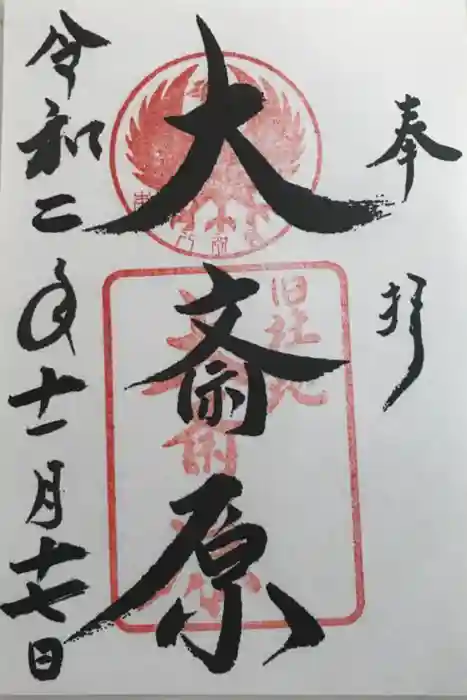 奉拝
大斎原
旧社地
大斎原
令和二年十一月十七日